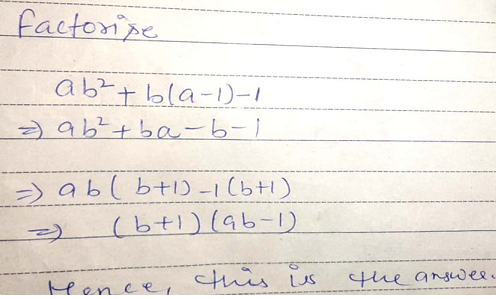 Factorise
ab²+b(a-1)-1
⇒ ab²+ba-b-1
⇒ ab(b+1)-1(b+1)
⇒ (b+1)(ab-1)
Hence, this is the answer.